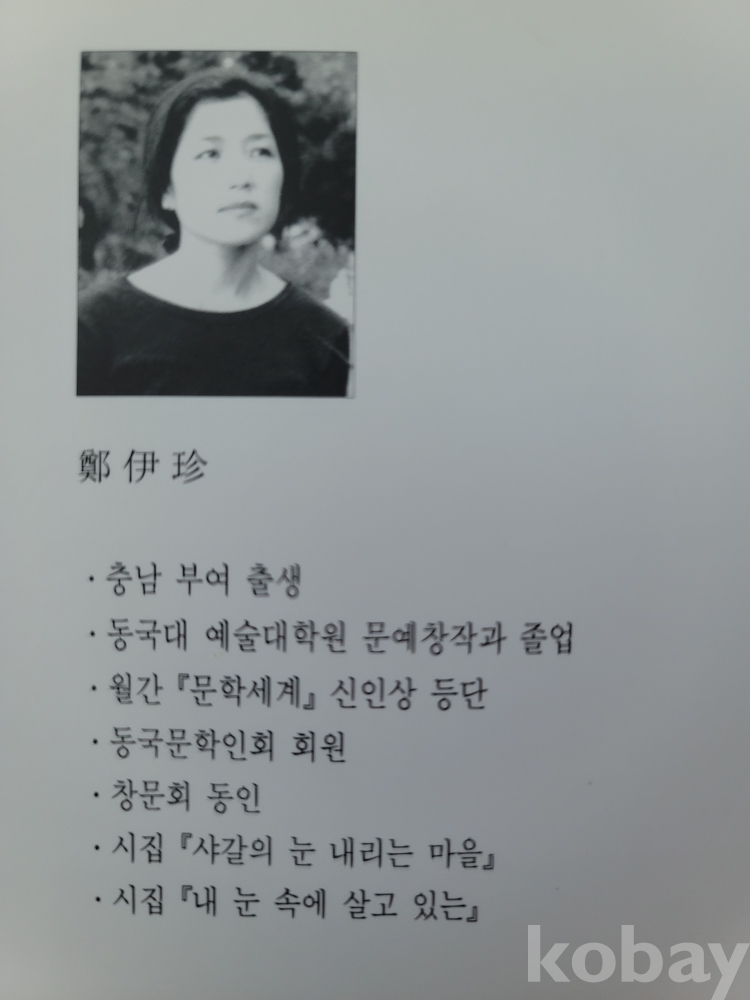 鄭伊珍
· 충남 부여 출생
· 동국대 예술대학원 문예창작과 졸업
· 월간 『문학세계』 신인상 등단
· 동국문학인회 회원
· 창문회 동인
· 시집 『샤갈의 눈 내리는 마을』
· 시집 『내 눈 속에 살고 있는』
kobay